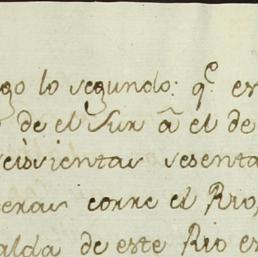 go lo segundo: q.e en
de el Sur â el de
seiscientas sesenta
eras corre el Rio,
alda de este Rio es